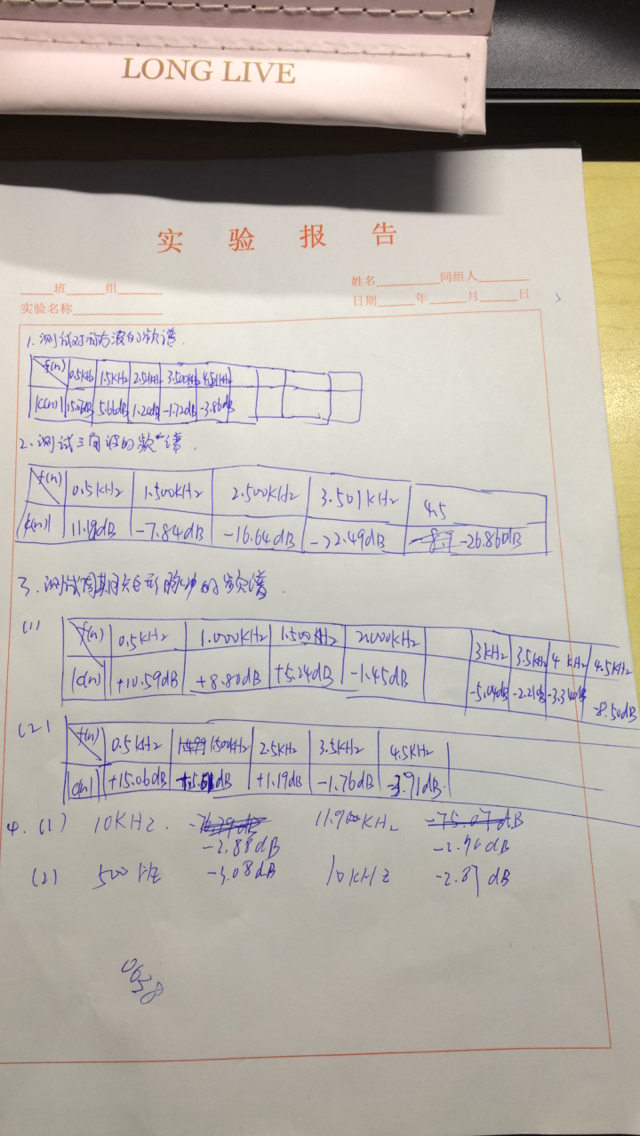 LONG LIVE
实 验 报 告
班 组 姓名 同组人
实验名称 日期 年 月 日
1.测试对称方波的频谱.
f(n) 0.5KHz 1.5KHz 2.5KHz 3.500KHz 4.501KHz
|C(n)| 15.07dB 5.66dB 1.20dB -1.72dB -3.86dB
2.测试三角波的频谱.
f(n) 0.5KHz 1.500KHz 2.500KHz 3.501KHz 4.5
|C(n)| 11.19dB -7.84dB -16.64dB -22.49dB -26.86dB
3.测试周期矩形脉冲的频谱.
(1) f(n) 0.5KHz 1.000KHz 1.500KHz 2.000KHz 3KHz 3.5KHz 4 KHz 4.5KHz
|C(n)| +10.59dB +8.80dB +5.24dB -1.45dB -5.04dB -2.21dB -8.50dB
(2) f(n) 0.5KHz 1.500KHz 2.5KHz 3.5KHz 4.5KHz
|C(n)| +15.06dB +1.19dB -1.76dB -3.91dB
4.(1) 10KHz. -76.39dB 11.900KHz -75.07dB
-2.88dB -2.90dB
(2) 500 HZ -3.08dB 10KHZ -2.87dB